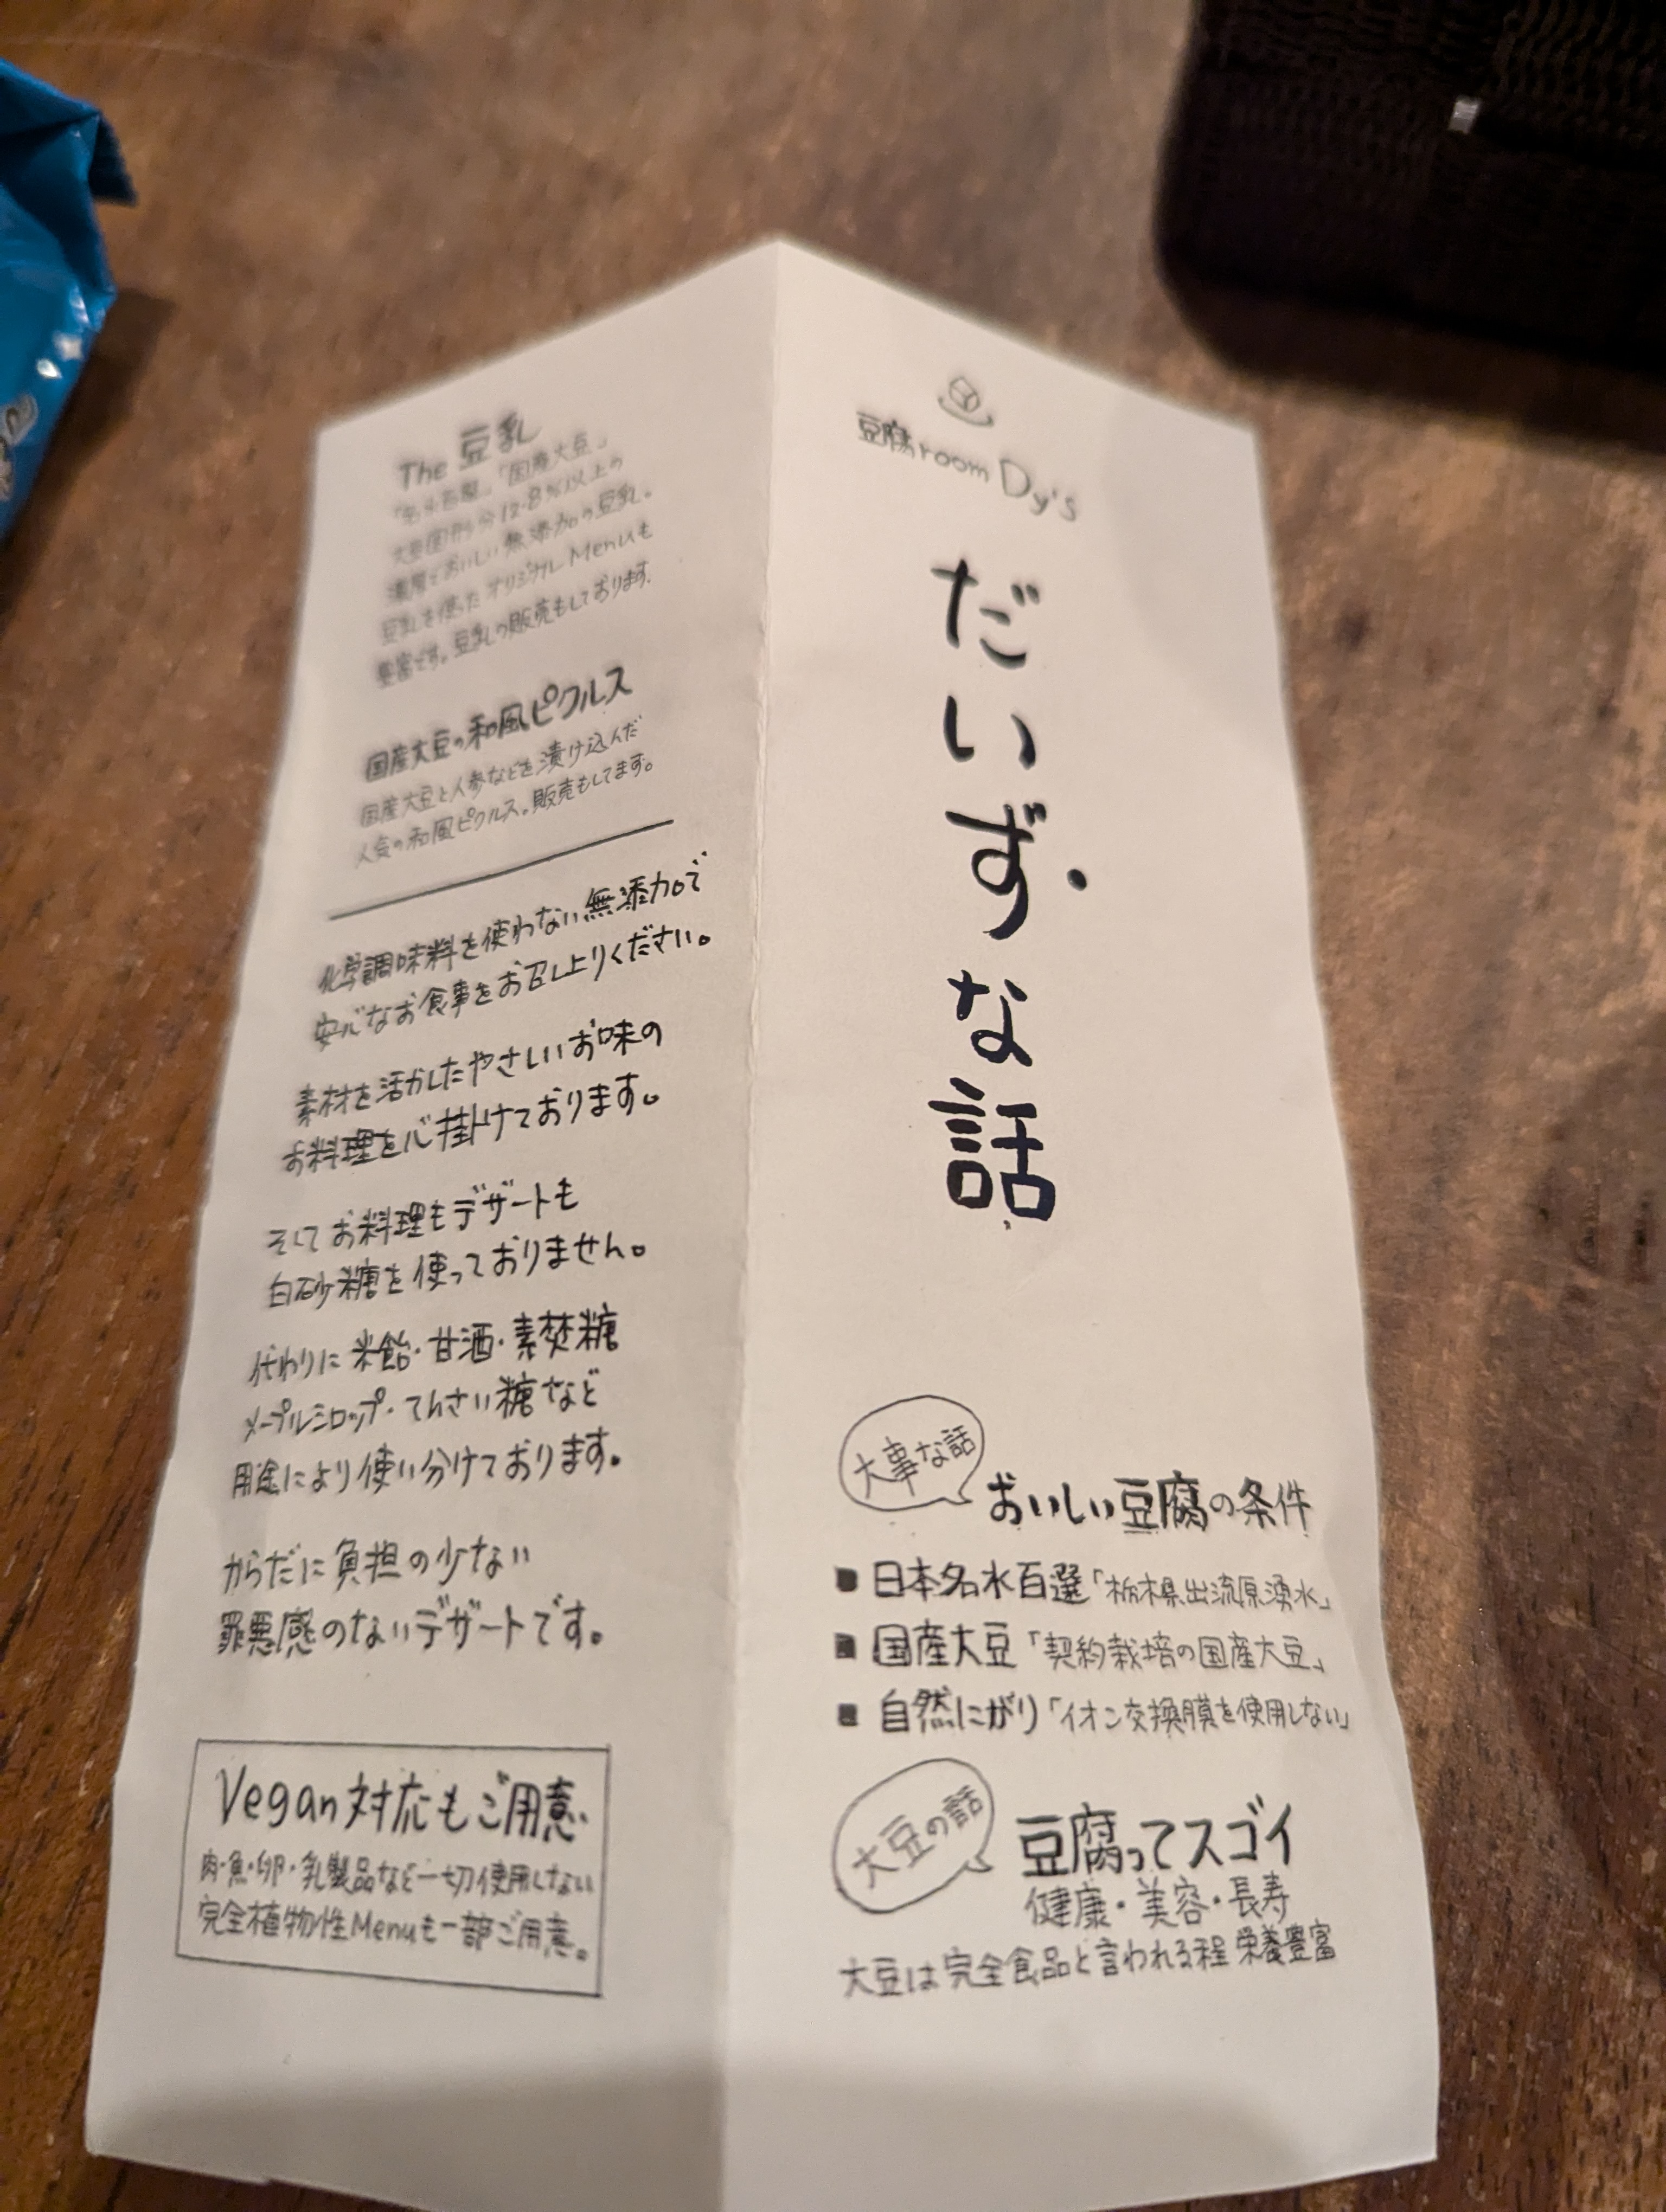 豆腐room Dy's
だいずな話
大事な話
おいしい豆腐の条件
■ 日本名水百選「栃木県出流原湧水」
■ 国産大豆「契約栽培の国産大豆」
■ 自然にがり「イオン交換膜を使用しない」
大豆の話
豆腐ってスゴイ
健康・美容・長寿
大豆は完全食品と言われる程栄養豊富
The 豆乳
「名水百選」「国産大豆」
大豆固形分12.8%以上の
濃厚でおいしい無添加の豆乳。
豆乳を使ったオリジナルMenuも
豊富です。豆乳の販売もしております。
国産大豆の和風ピクルス
国産大豆と人参などを漬け込んだ
人気の和風ピクルス。販売もしてます。
化学調味料を使わない無添加で
安心なお食事をお召し上りください。
素材を活かしたやさしいお味の
お料理を心掛けております。
そしてお料理もデザートも
白砂糖を使っておりません。
代わりに米飴・甘酒・素焚糖
メープルシロップ・てんさい糖など
用途により使い分けております。
からだに負担の少ない
罪悪感のないデザートです。
Vegan対応もご用意
肉・魚・卵・乳製品など一切使用しない
完全植物性Menuも一部ご用意。